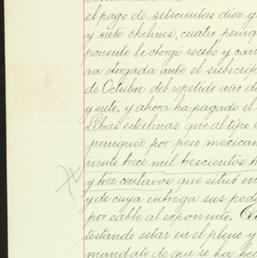 el pago de seiscientas diez y
y siete chelines, cuatro peniq
ponente le otorgó recibo y can
ra otorgada ante el subscrip
de Octubre del repetido año d
y siete, y ahora ha pagado el
Libras esterlinas que al tipo e
peniques por peso mexican
ciente trece mil trescientos
y tres centavos que situó en
y de cuya entrega sus pod
por cable al exponente. 
testando estar en el pleno y
mandato de que se ha hec